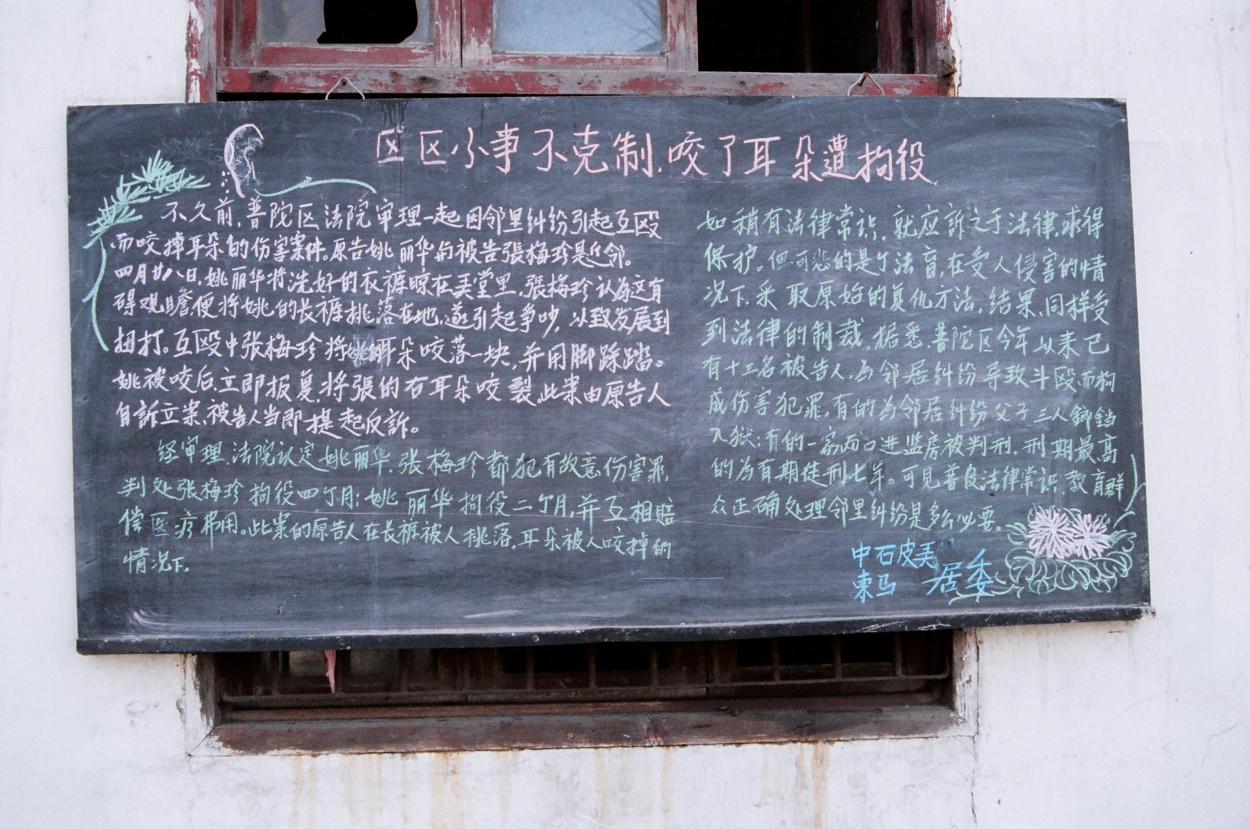 区区小事不克制,咬了耳朵遭拘役
不久前,普陀区法院审理一起因邻里纠纷引起互殴
而咬掉耳朵的伤害案件。原告姚丽华与被告張梅珍是近邻。
四月廿八日,姚丽华将洗好的衣裤晾在天堂里,張梅珍认为这有
碍观瞻便将姚的长裤挑落在地,遂引起争吵,以致发展到
扭打。互殴中张梅珍将姚耳朵咬落一块,并用脚踩踏。
姚被咬后,立即报复,将張的右耳朵咬裂,此案由原告人
自訴立案,被告人当即提起反訴。
经审理,法院认定姚丽华,张梅珍都犯有故意伤害罪,
判处张梅珍拘役四个月;姚丽华拘役二个月,并互相赔
偿医疗费用。此案的原告人在长裤被人挑落,耳朵被人咬掉的
情况下。
如稍有法律常识,就应訴之于法律,求得
保护。但可悲的是个法盲,在受人侵害的情
况下,采取原始的复仇方法,结果,同样受
到法律的制裁。据悉,普陀区今年以来已
有十三名被告人,为邻居纠纷导致斗殴而构
成伤害犯罪,有的为邻居纠纷父子三人鋃铛
入狱;有的一家两口进监房被判刑,刑期最高
的为有期徒刑七年。可见普及法律常识,教育群
众正确处理邻里纠纷是多么必要。
中石皮美
東马 居委